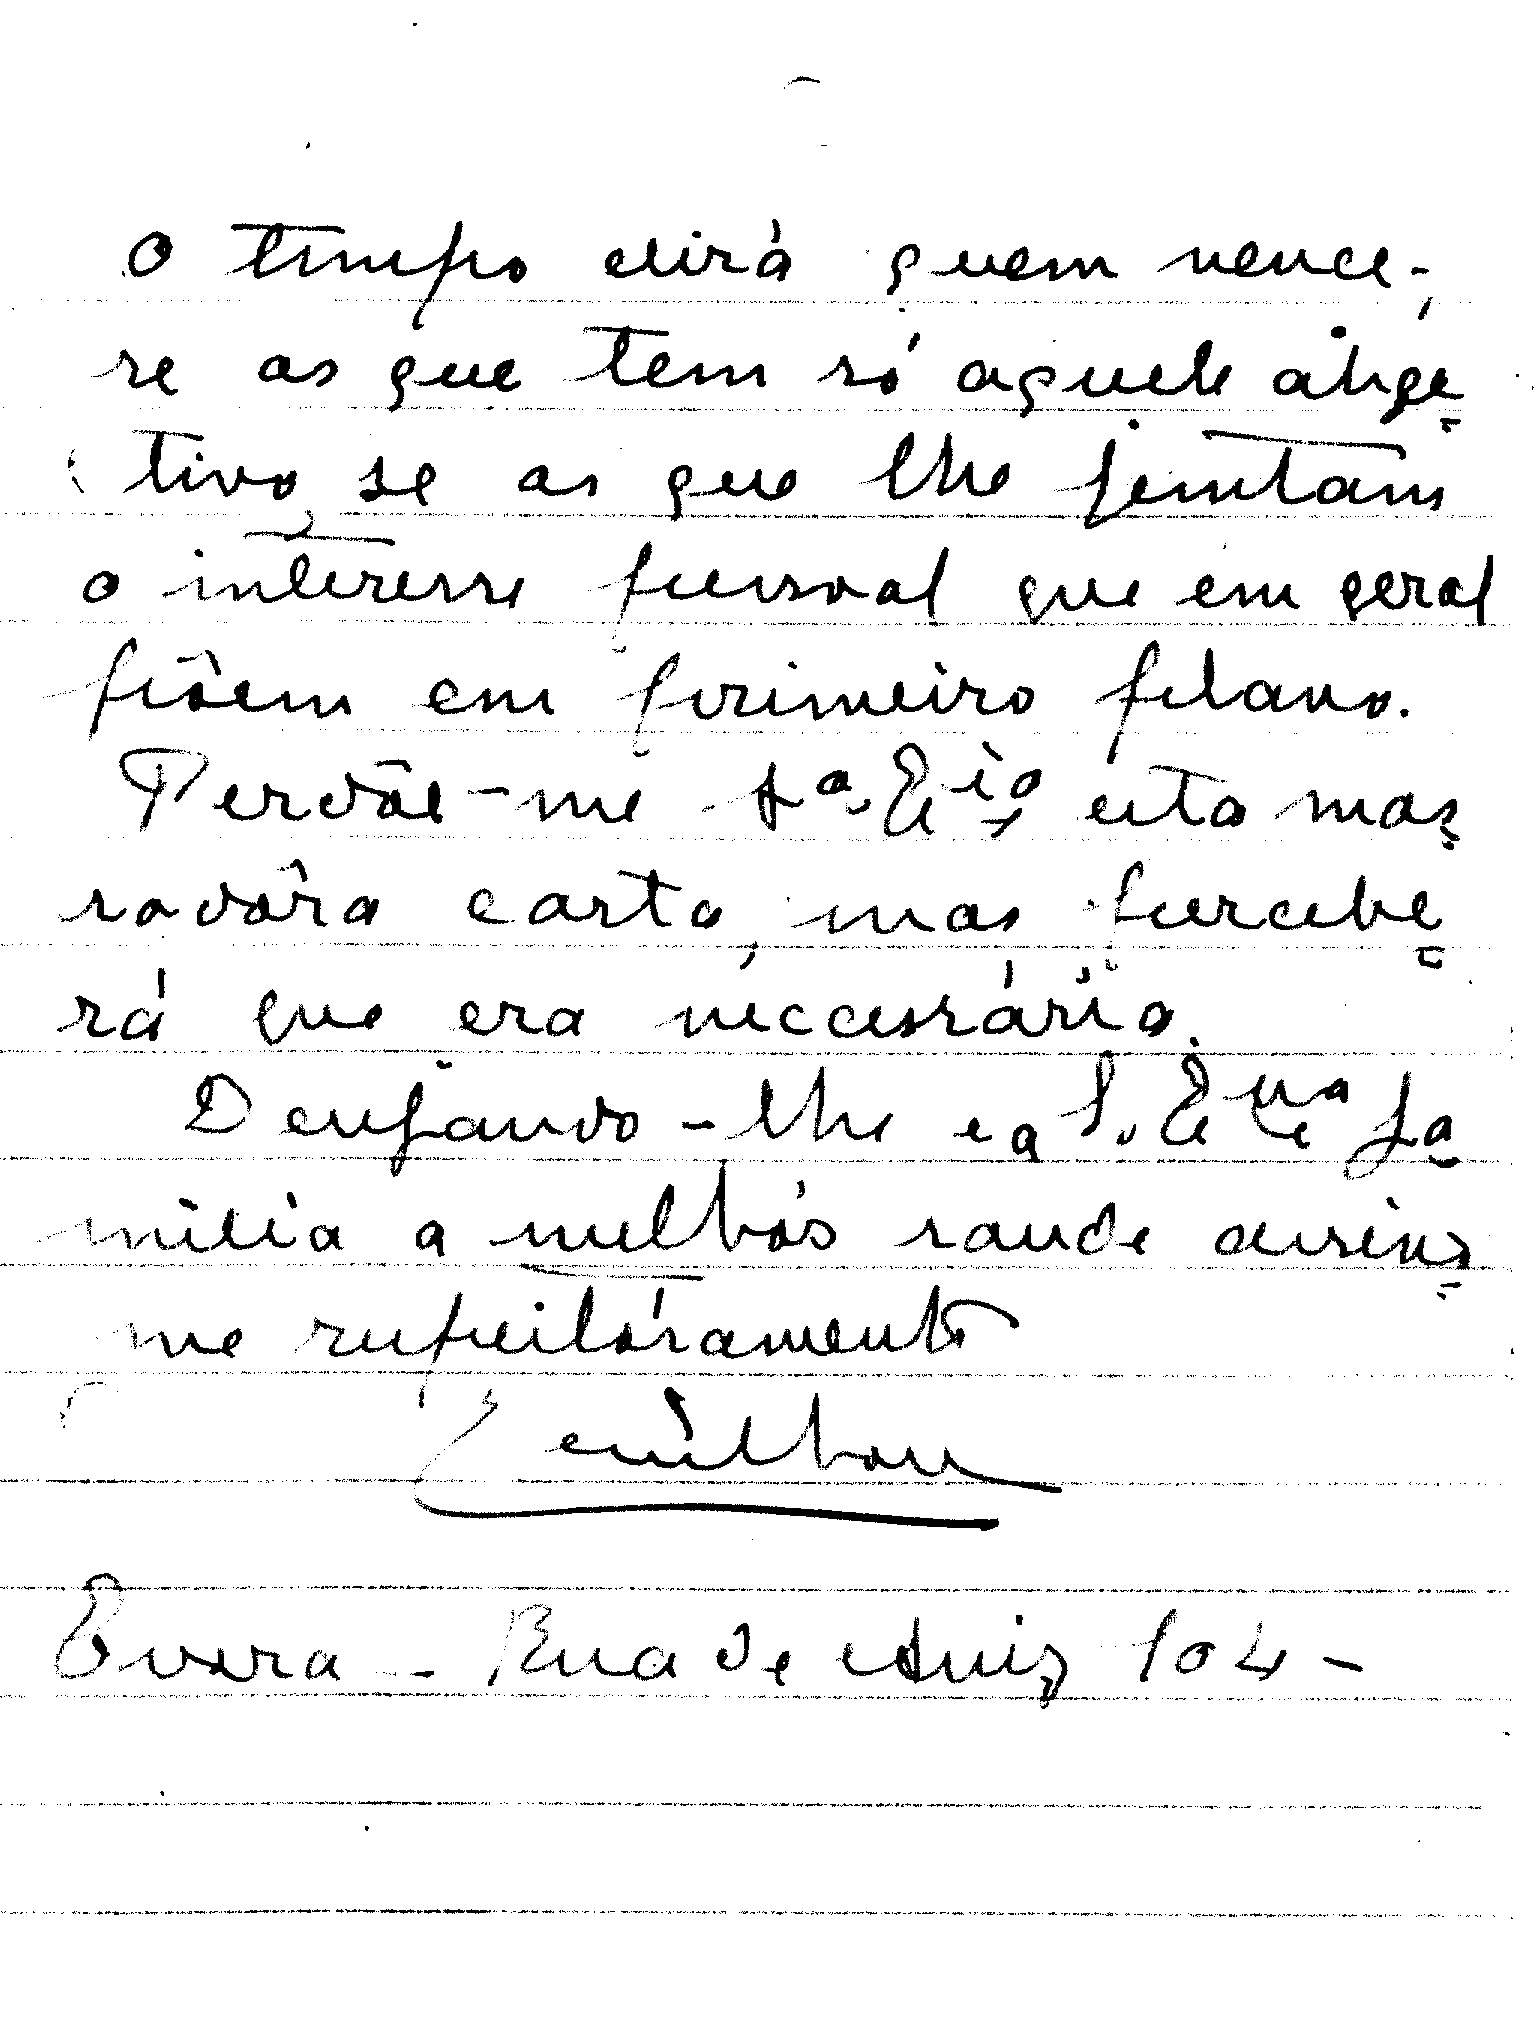 O tempo dirá quem vence,
se os que tem só aquele obje
tivo, se os que lhe juntam
o interesse pessoal que em geral
põem em primeiro plano.
Perdôe-me S.a Ex.ia, esta mas
sadôra carta, mas percebe
rá que era neccessário.
Desejando-lhe e a S. Exma fa
milia a melhór saude assino
me respeitósamente
Évora - Rua de Aviz 104 -